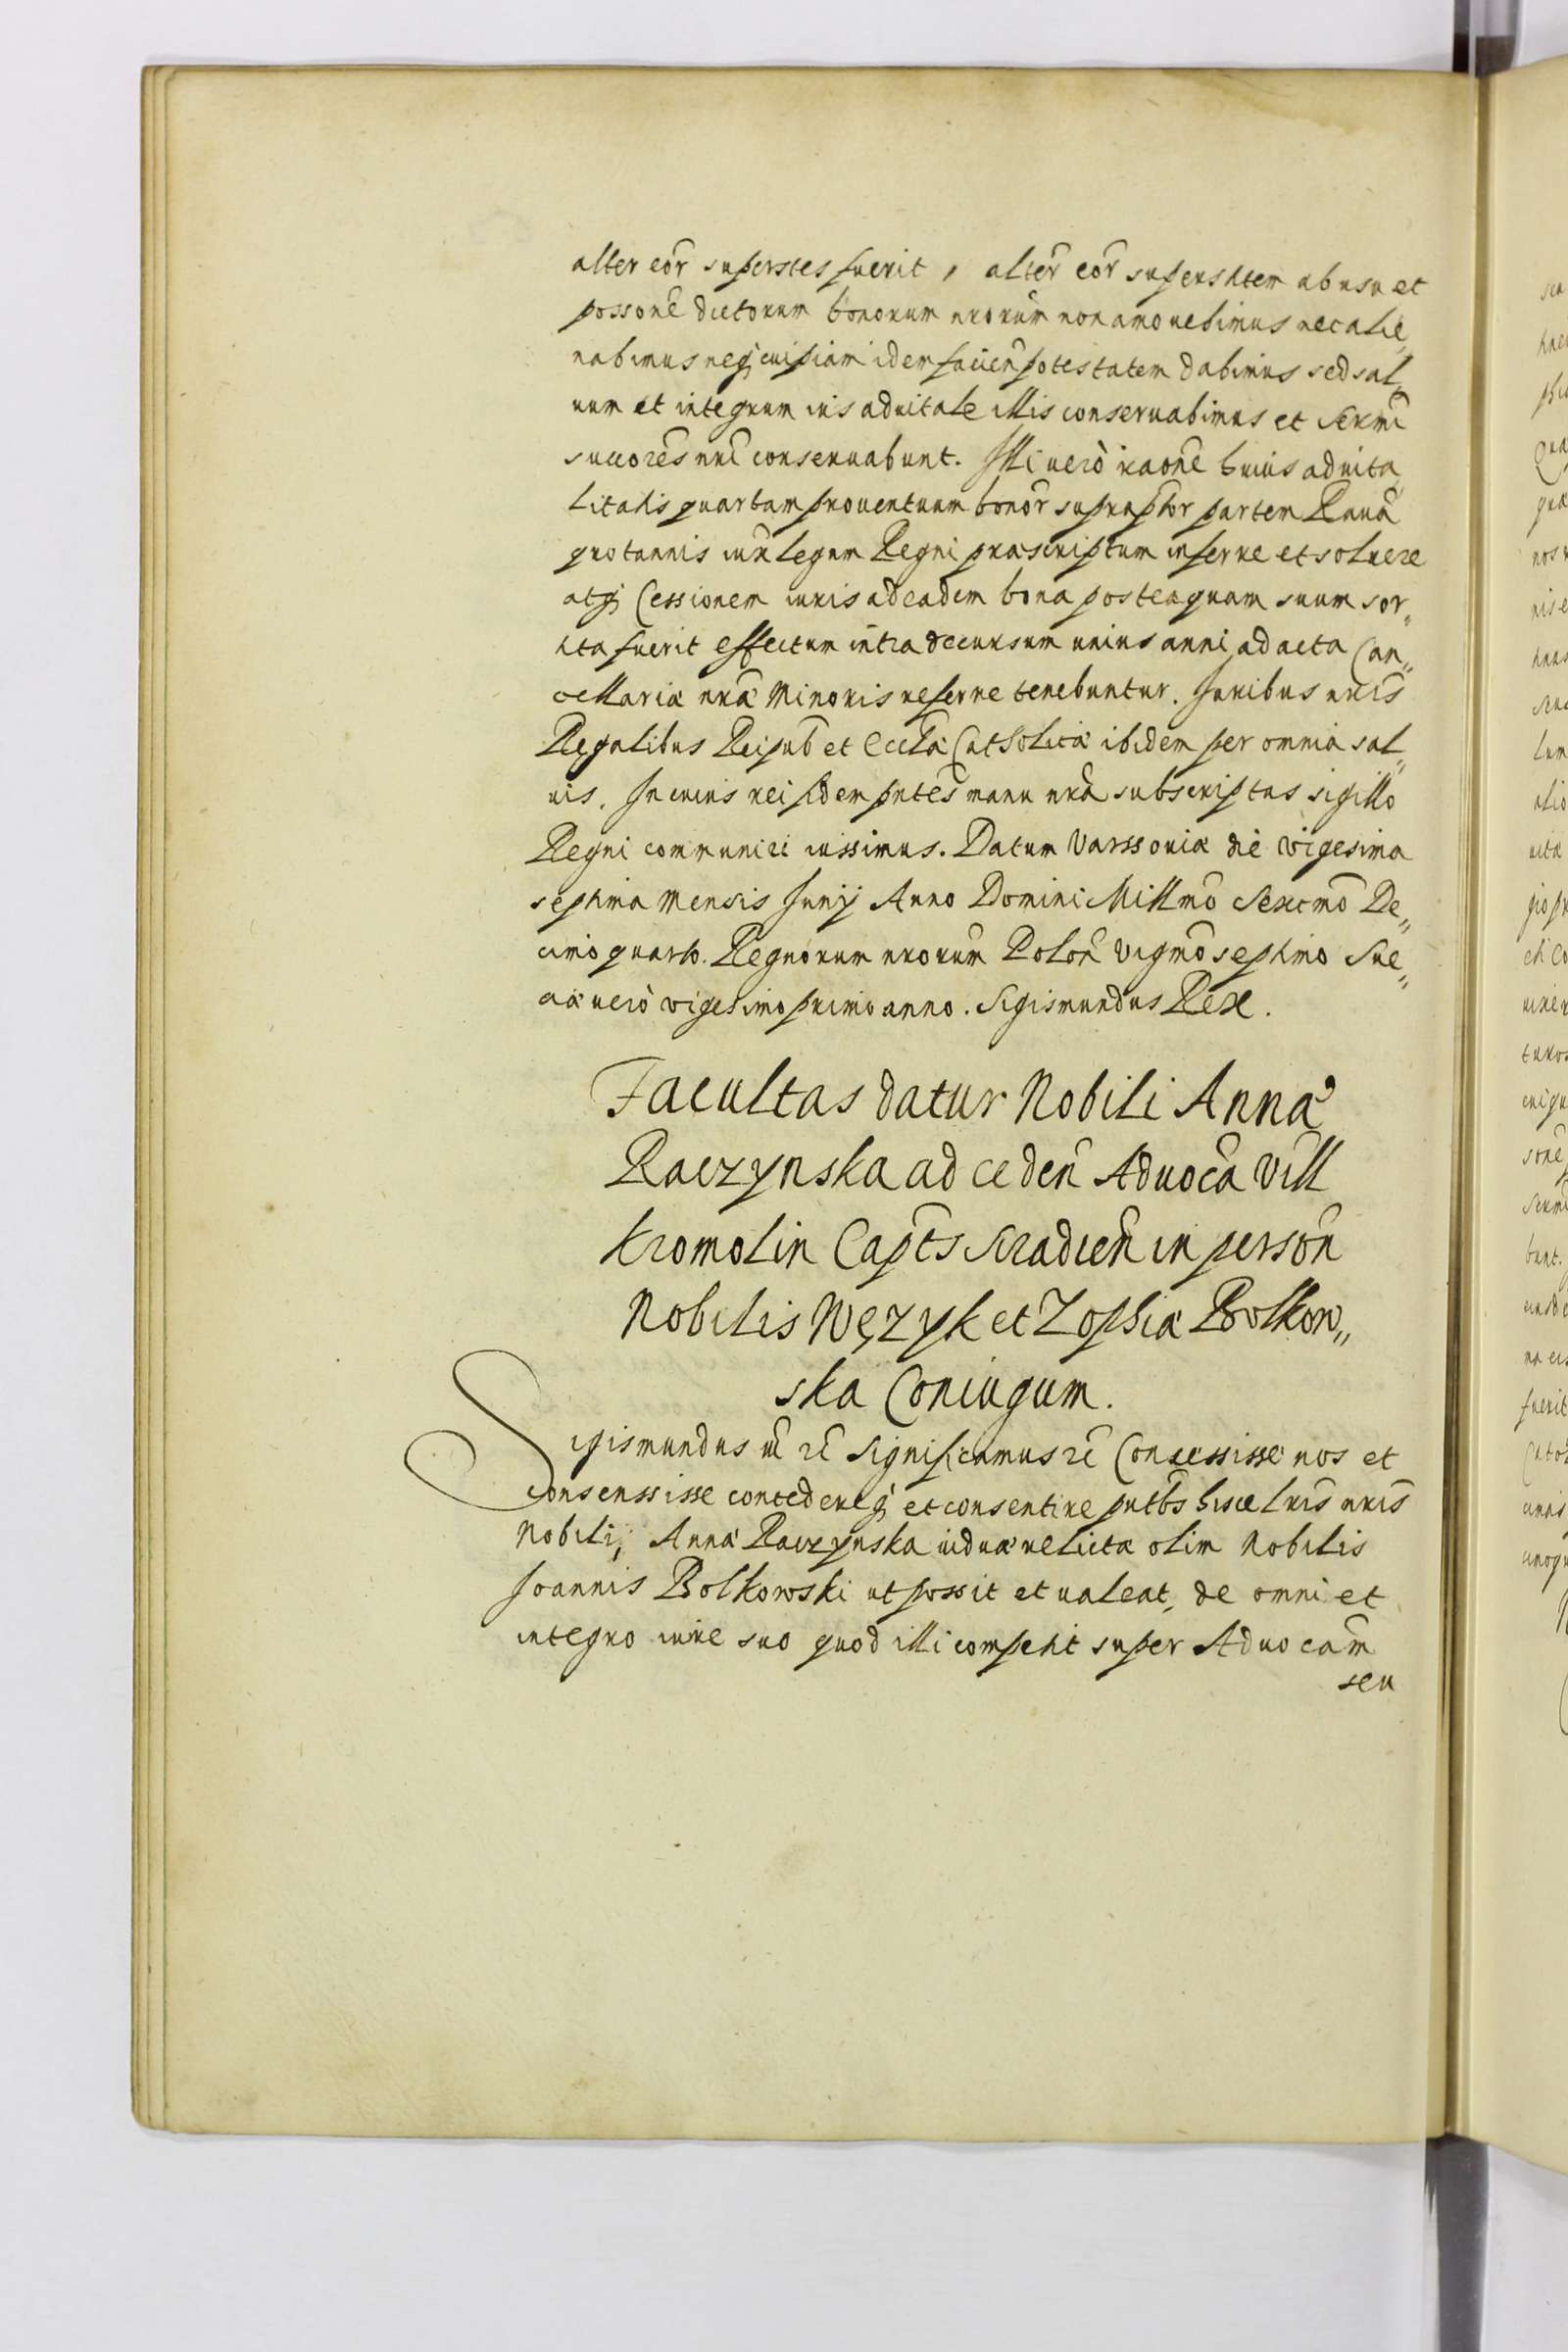 alter eor̃ superstes fuerit, alter̃ eor̃ superstitem ab usu et
possonẽ dictorum bonorum nrorũm non amouebimus nec alie„
nabimus neq; cuipiam idem facien̄ potestatem dabimus sed sal„
uum et integrum ius aduitale illis conseruabimus et Serm̃i
succores̃ nrĩ conseruabunt. Illi uerò raonẽ huius aduita„
litatis quartam prouentuum bonor̃ supraptor̃ partem Rauã
quotannis iux̃ legum Regni præscriptum inferre et soluere
atq; Cessionem iuris ad eadem bona posteaquam suum sor„
tita fuerit effectum intra decursum unius anni ad acta Can„
cellariæ nræ̃ Minoris referre tenebuntur. Iuribus nris̃
Regalibus Reipub̃ et Eccl̃æ Catholicæ ibidem per omnia sal„
uis. In cuius rei fidem pñtes manu nrã subscriptas sigillo
Regni communiri iussimus. Datum Varssouiæ die vigesima
septima Mensis Iunij Anno Domini Millmõ Sexcmõ De„
cimo quarto. Regnorum nrorũm Polon̄ vigmõ septimo Sue„
ciæ uerò vigesimo primo anno. Sigismundus Rex.
Facultas datur Nobili Annæ
Raczynska ad ceden̄ Aduocã Vill̃
Kromolin Capt̃s Siradien̄ in person̄
Nobilis Węzyk et Zophiæ Bolkow„
ska Coniugum.
Sigismundus uẽ rẽ Significamus rẽ Concessisse nos et
consenssisse concedereq; et consentire pñtbs hisce lris̃ nris̃
Nobili, Annæ Raczynska uiduæ relictæ olim Nobilis
Joannis Bolkowski ut possit et ualeat, de omni et
integro iure suo quod illi competit super Aduocam̃
seu